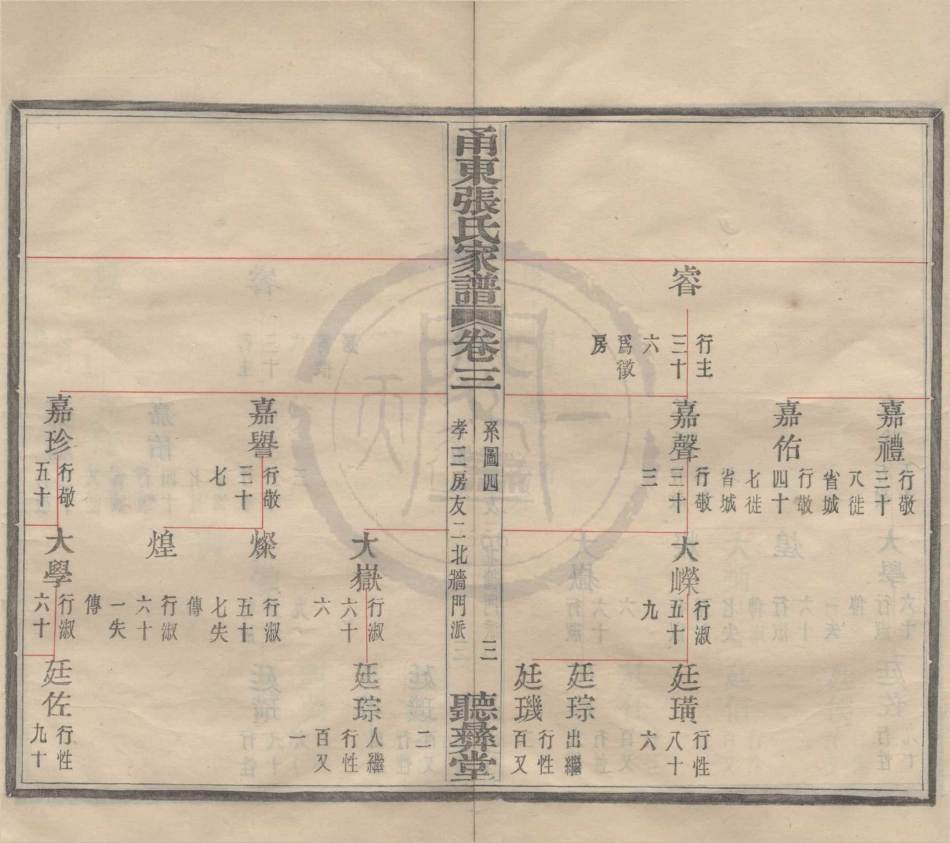 甬東張氏家譜
卷三
系圖四
三
孝三房友二北牆門派
聽彝堂
睿
行主
三十
六
爲徵
房
嘉禮
行敬
三十
八徙
省城
嘉佑
行敬
四十
七徙
省城
嘉聲
行敬
三十
三
大嶸
行淑
五十
九
廷璜
行性
八十
六
廷琮
出繼
廷璣
行性
百又
二
嘉譽
行敬
三十
七
大嶽
行淑
六十
六
廷琮
入繼
行性
百又
一
燦
行淑
五十
七失
傳
煌
行淑
六十
一失
傳
嘉珍
行敬
五十
大學
行淑
六十
廷佐
行性
九十